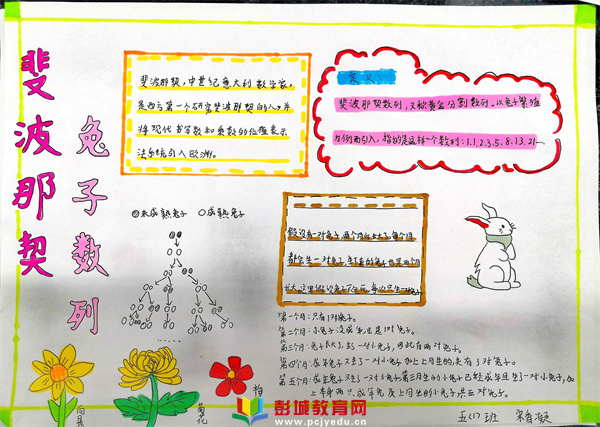 斐波那契
兔子数列
斐波那契,中世纪意大利数学家,
是西方第一个研究斐波那契的人,并
将现代书写数和乘数的位值表示
法系统引入欧洲。
定义
斐波那契数列,又称黄金分割数列。以兔子繁殖
为例而引入,指的是这样一个数列:1.1.2.3.5.8.13.21…
未成熟兔子 成熟兔子
假设有一对兔子,两个月后长大了,每个月
都会生一对兔子,
第一个月:只有1对兔子。
第二个月:小兔子没成年还是1对兔子。
第三个月:兔子长大了,生了一对小兔子,因此有两对兔子。
第四个月:成年兔子又生了一对小兔子加上上月生的,共有了3对兔子。
第五个月:成年兔子又生了一对小兔子第三月生的小兔子已经成年且生了一对小兔子,加
上本身两只成年兔及上月生的小兔子共五对兔子。
菊花
五(1)班
彭城教育网
www.pcjyedu.cn